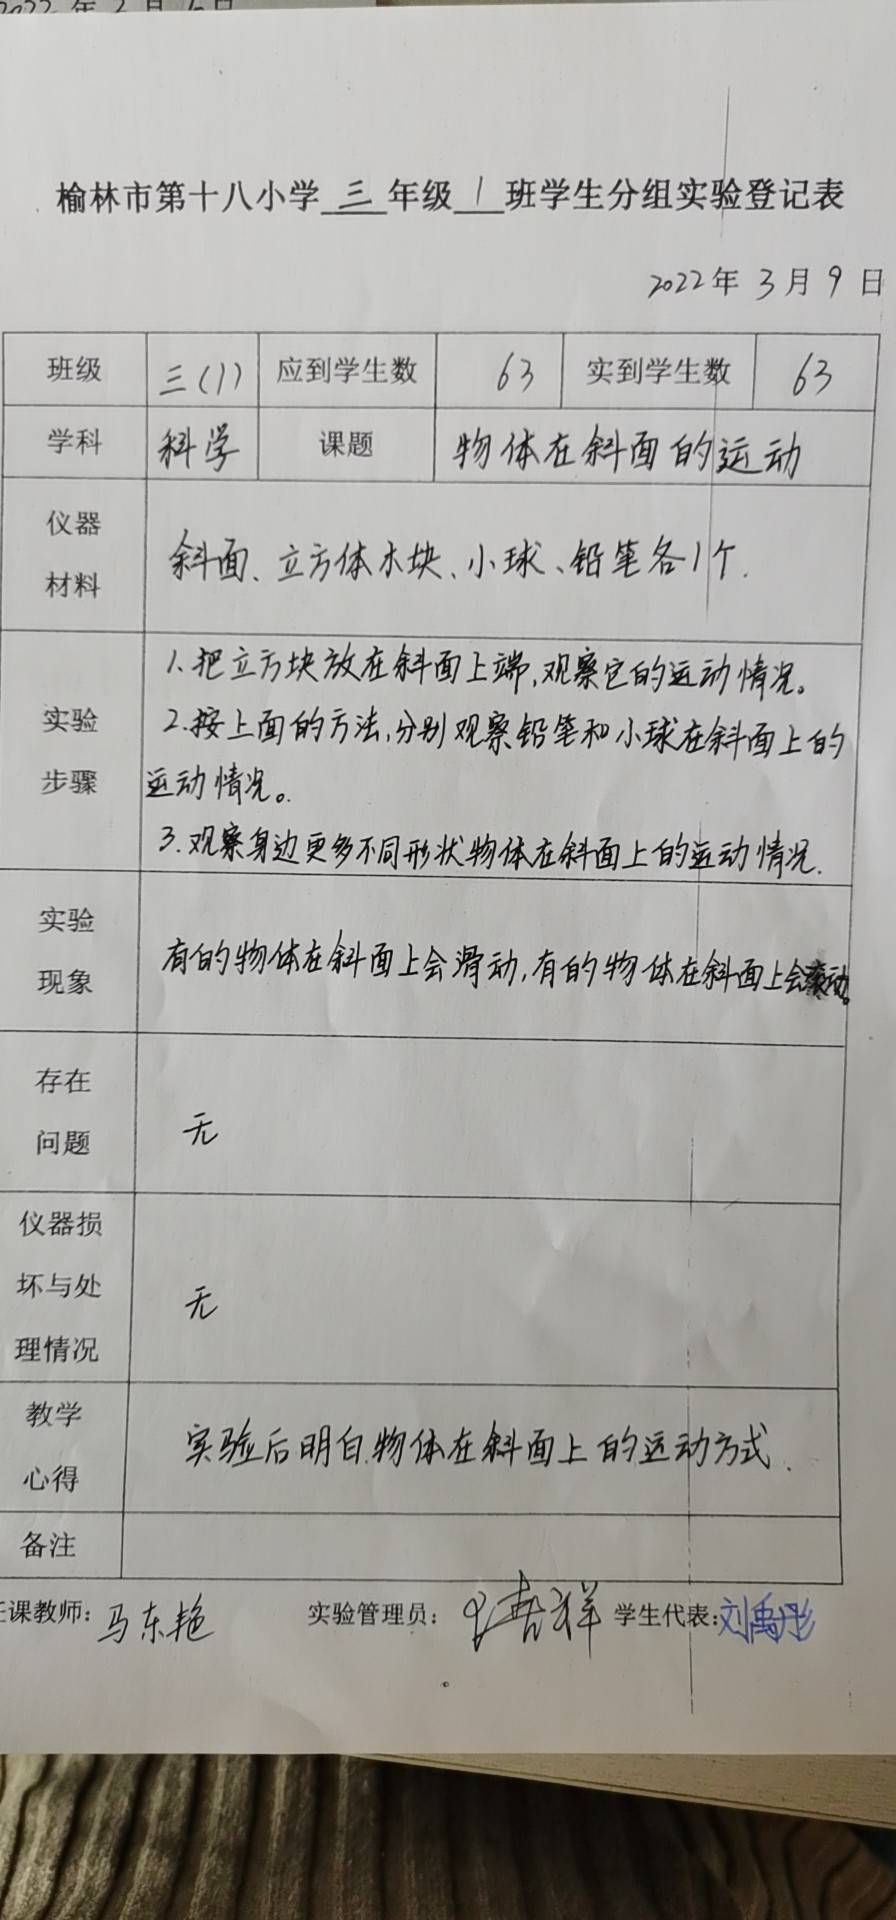 榆林市第十八小学三年级1班学生分组实验登记表
2022年3月9日
班级 三(1) 应到学生数 63 实到学生数 63
学科 科学 课题 物体在斜面的运动
仪器
材料
斜面、立方体木块、小球、铅笔各1个.
实验
步骤
1.把立方块放在斜面上端,观察它的运动情况。
2.按上面的方法,分别观察铅笔和小球在斜面上的
运动情况。
3.观察身边更多不同形状物体在斜面上的运动情况.
实验
现象
有的物体在斜面上会滑动,有的物体在斜面上会滚动。
存在
问题
无
仪器损
坏与处
理情况
无
教学
心得
实验后明白物体在斜面上的运动方式.
备注
任课教师:马东艳 实验管理员: 学生代表:刘禹彤